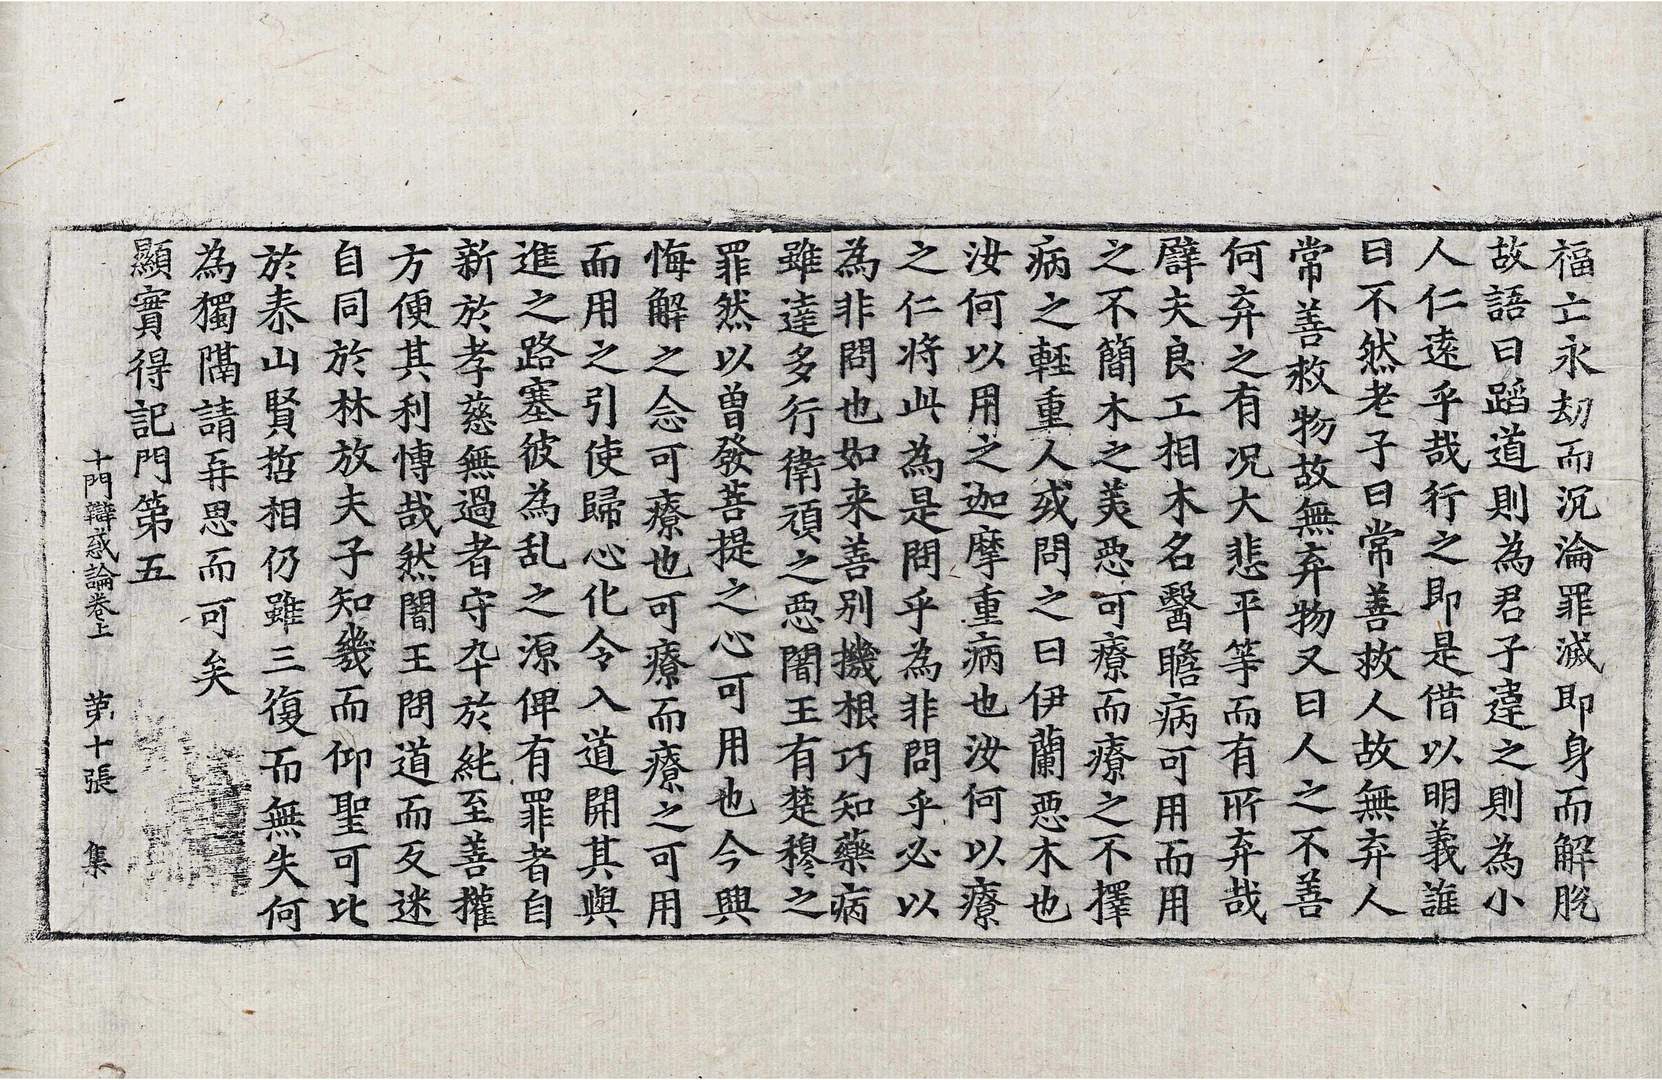 福亡永劫而沉淪罪滅即身而解脫
故語曰蹈道則為君子違之則為小
人仁遠乎哉行之即是借以明義誰
曰不然老子曰常善救人故無弃人
常善救物故無弃物又曰人之不善
何弃之有况大悲平等而有所弃哉
譬夫良工相木名醫瞻病可用而用
之不簡木之美惡可療而療之不擇
病之輕重人或問之曰伊蘭惡木也
汝何以用之迦摩重病也汝何以療
之仁將此為是問乎為非問乎必以
為非問也如来善別機根巧知藥病
雖達多行衛頑之惡闍王有楚穆之
罪然以曾發菩提之心可用也今興
悔解之念可療也可療而療之可用
而用之引使歸心化令入道開其與
進之路塞彼為乱之源俾有罪者自
新於孝慈無過者守卒於純至善權
方便其利愽哉然闍王問道而反迷
自同於林放夫子知幾而仰聖可比
於泰山賢哲相仍雖三復而無失何
為獨隔請再思而可矣
顯實得記門第五
十門辯惑論卷上　第十張　集